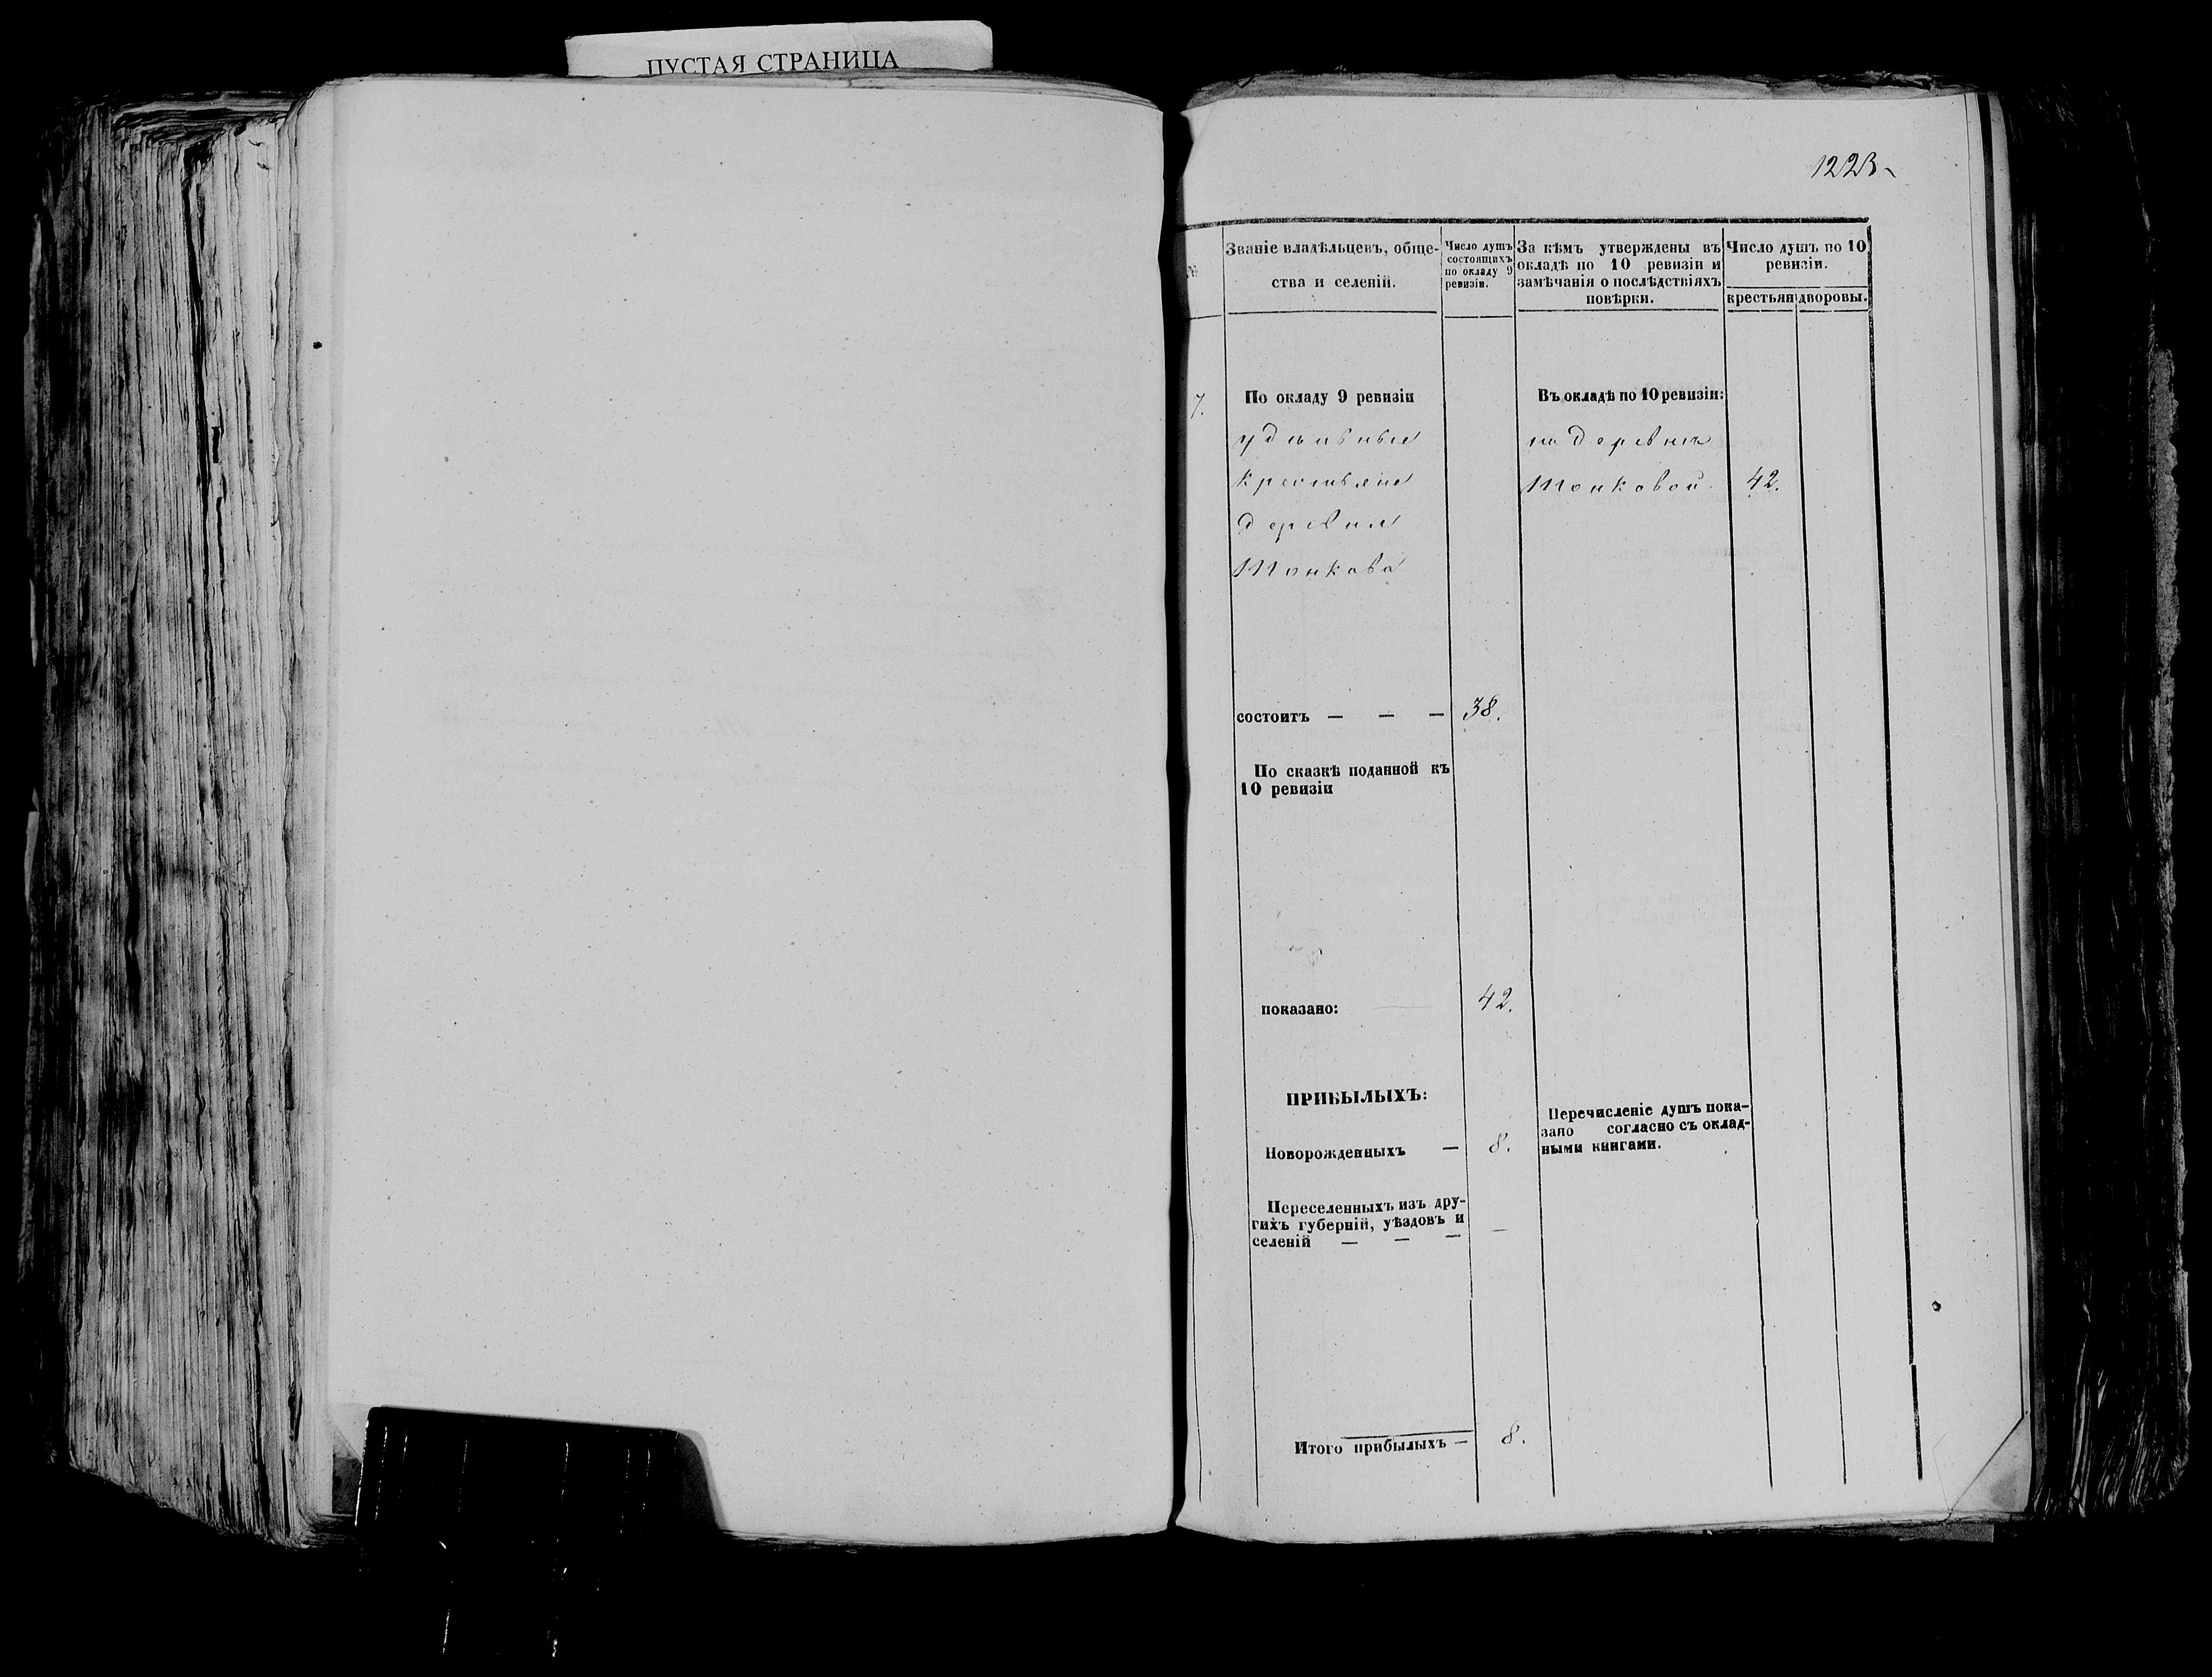 ПУСТАЯ СТРАНИЦА
1223
Званіе владѣльцевъ, обще-
ства и селеній.
Число душъ
состоящихъ
по окладу 9
ревизіи.
За кѣмъ утверждены въ
окладѣ по 10 ревизіи и
замѣчанія о послѣдствіяхъ
повѣрки.
Число душъ по 10
ревизіи.
крестьян
дворовы.
7.
По окладу 9 ревизіи
удѣльные
крестьяне
деревня
Тонкова
состоитъ — — —
38.
По сказкѣ поданной къ
10 ревизіи
показано:
42.
ПРИБЫЛЫХЪ:
Новорожденныхъ —
8.
Переселенныхъ изъ дру-
гихъ губерній, уѣздовъ и
селеній — — —
—
Итого прибылыхъ —
8.
Въ окладѣ по 10 ревизіи:
деревнѣ
Тонковой
42.
Перечисленіе душъ пока-
зано согласно съ оклад-
ными книгами.